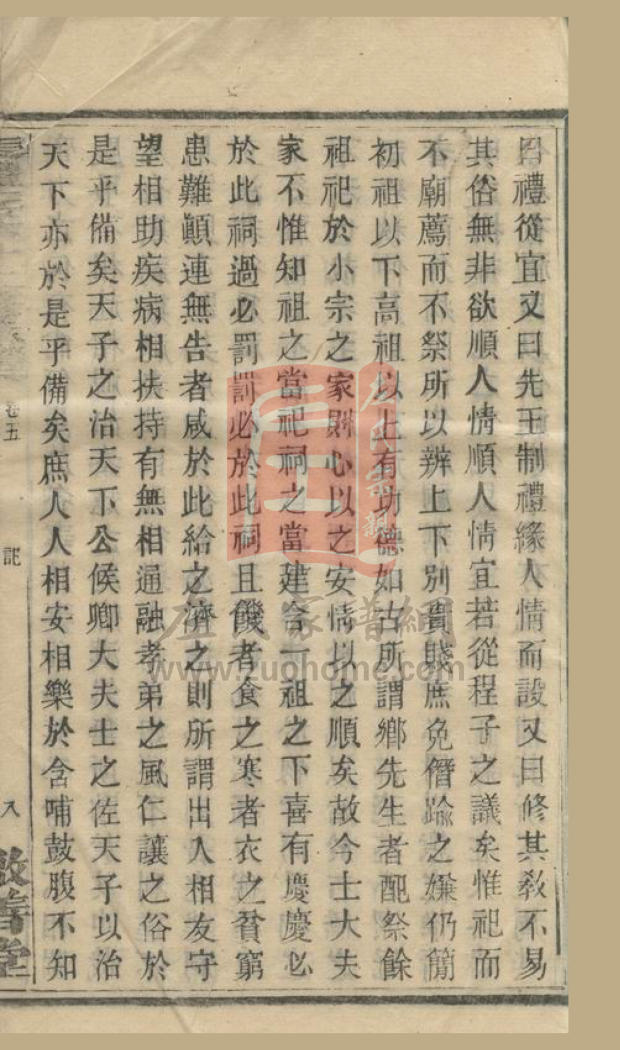 曰禮從宜又曰先王制禮緣人情而設又曰修其教不易
其俗無非欲順人情順人情宜若從程子之議矣惟祀而
不廟薦而不祭所以辨上下別貴賤庶免僭踰之嫌仍簡
初祖以下高祖以上有功德如古所謂鄉先生者配祭餘
祖祀於小宗之家則心以之安情以之順矣故今士大夫
家不惟知祖之當祀祠之當建合一祖之下喜有慶慶必
於此祠過必罰罰必於此祠且饑者食之寒者衣之貧窮
患難顛連無告者咸於此給之濟之則所謂出入相友守
望相助疾病相扶持有無相通融孝弟之風仁讓之俗於
是乎備矣天子之治天下公候卿大夫士之佐天子以治
天下亦於是乎備矣庶人人相安相樂於含哺鼓腹不知
卷五
記
八
敬善堂
左氏家譜網
www.zuohome.com